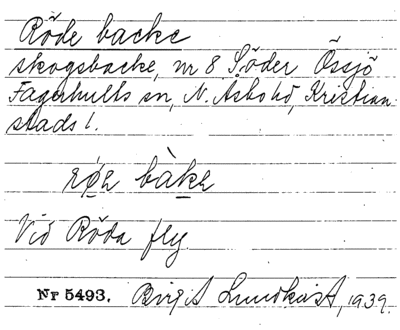 Röde backe
skogsbacke, nr 8 Söder Össjö
Fagerhults sn, N. Åsbo hd, Kristian-
stads l.
røe bàke
Vid Röda fly
Nr 5493. Birgit Lundkvist, 1939.